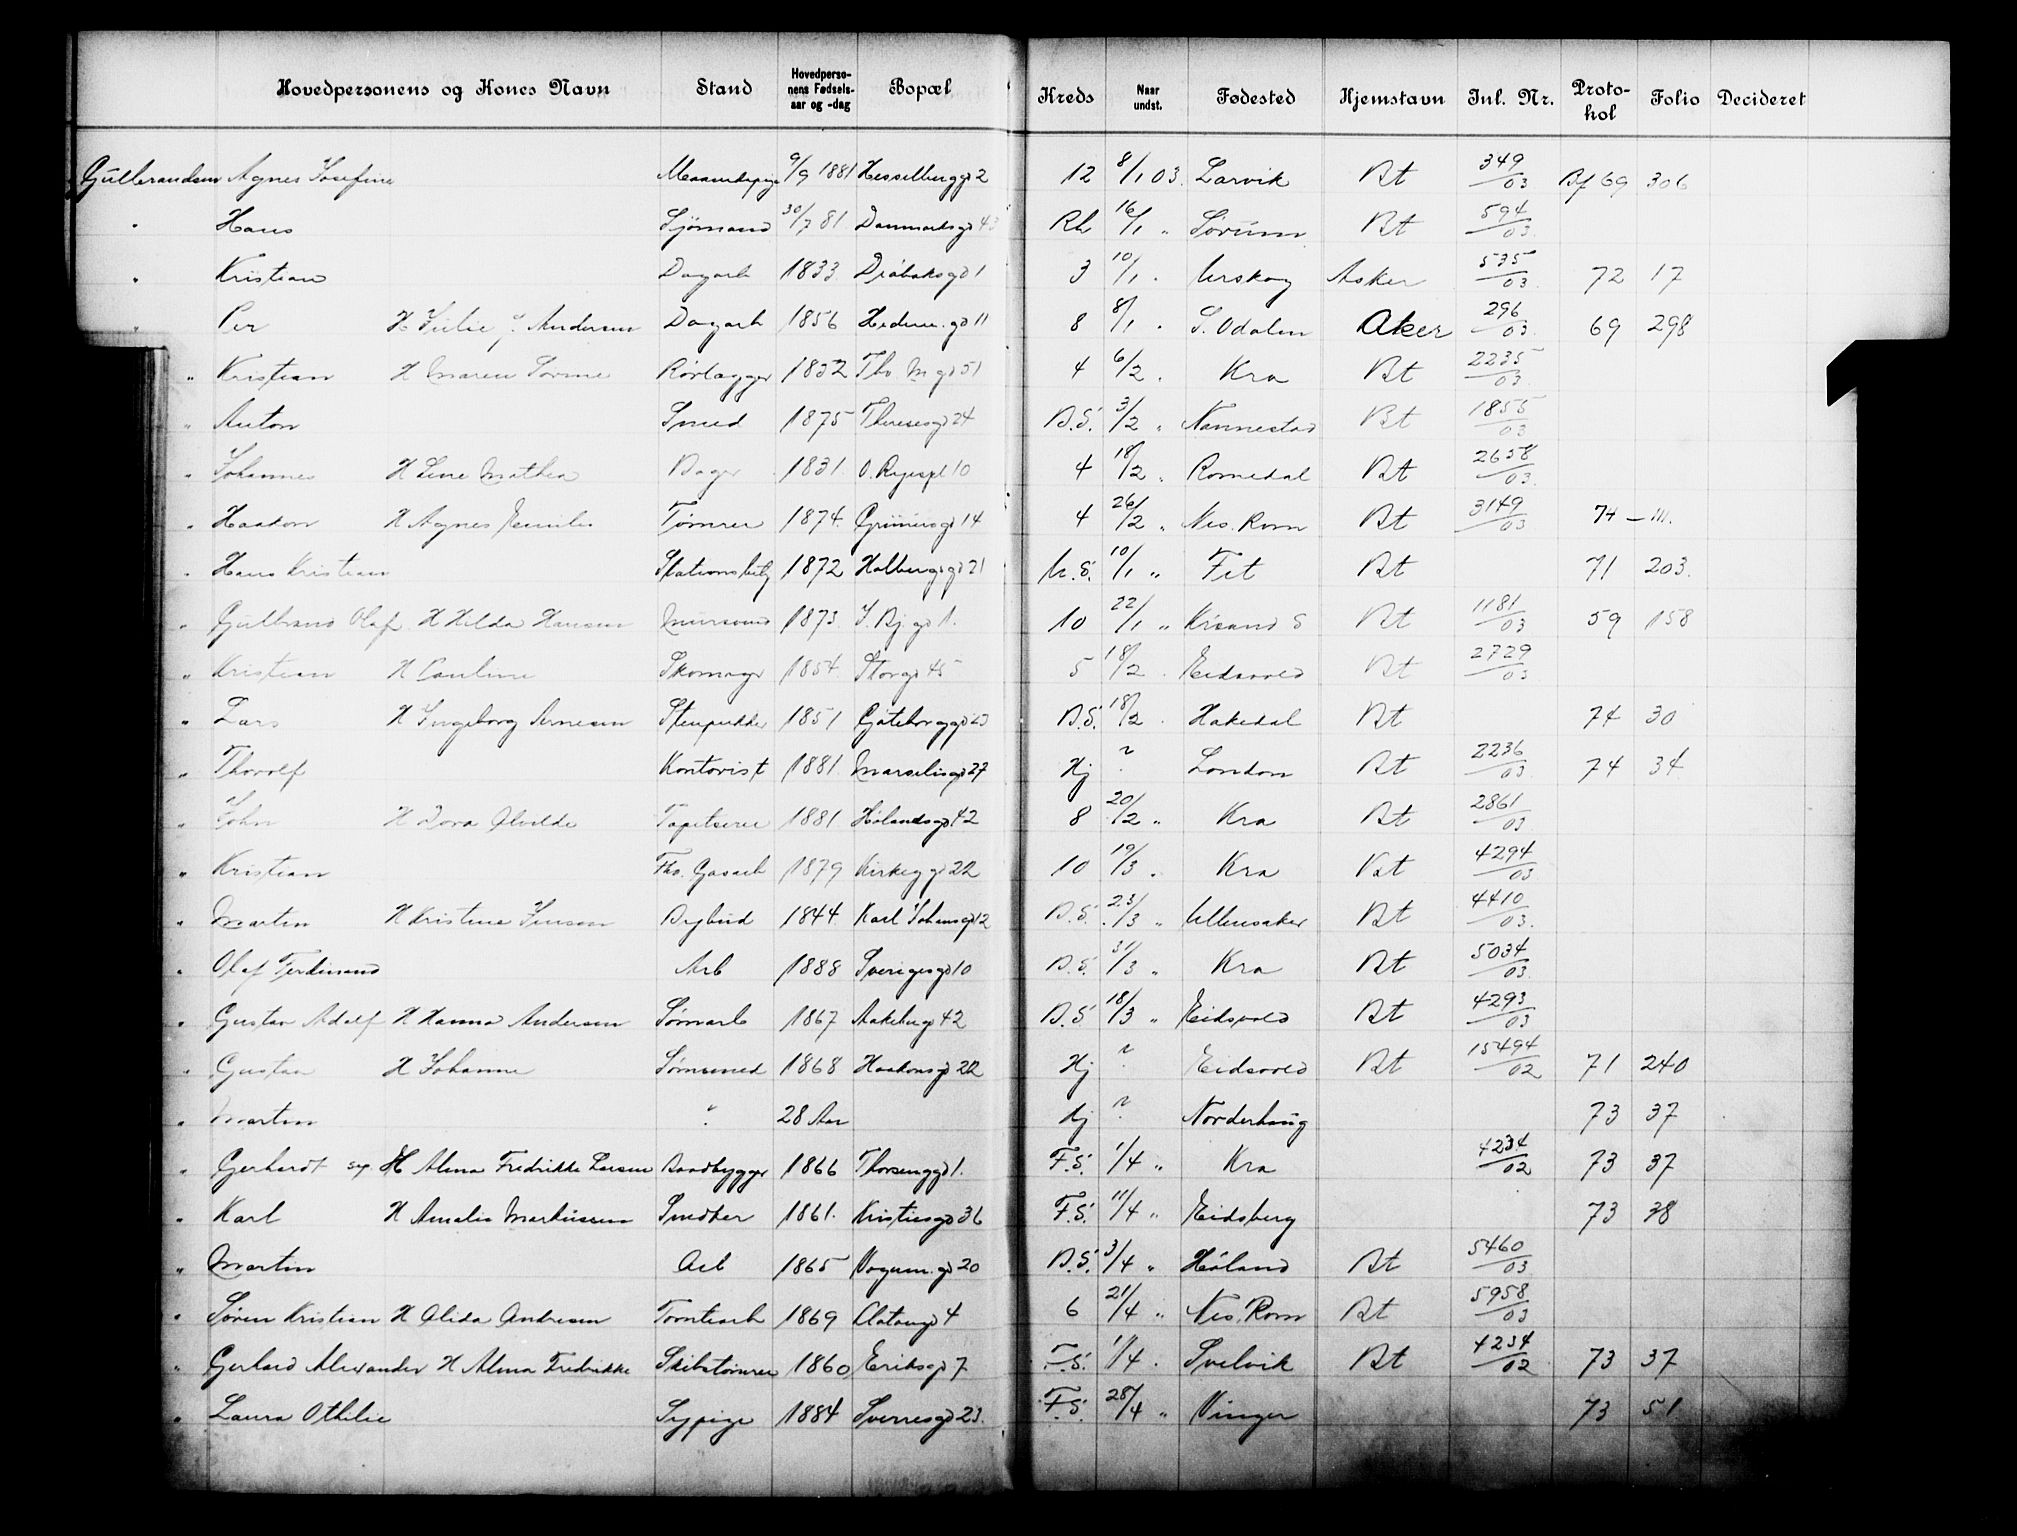 Hovedpersonens og Kones Navn Stand Hovedpersonens Fødselsaar og -dag Bopæl Kreds Naar undst. Fødested Hjemstavn Inl. Nr. Protokol Folio Decideret
Gulbrandsen Agnes Josefine 9/9 1881 Hesselberggd 2 12 8/1 03. Larvik Bt 349/03 Bf 69 306
" Hans Sjømand 30/7 81. Danmarksgd 43 Rh 16/1 " Sørum Bt 594/03
" Kristian Dagarb 1833. Drøbaksgd 1 3 10/1 " Urskog Asker 535/03 72 17
" Per H Julie f. Andersen Dagarb 1856 Hedem. gd 11 8 8/1 " S. Odalen Aker 296/03 69 298
" Kristian H Maren Sovine Rørlægger 1832 Tho. M gd 51 4 6/2 " Kra Bt 2235/03
" Anton Smed 1875 Theresesgd 24 B.S. 3/2 " Nannestad Bt 1855/03
" Johannes H Lene Mathea Bager 1831. O. Ryespl 10 4 18/2 " Romedal Bt 2658/03
" Haakon H Agnes Emilie Tømrer 1874. Grünersgd 14 4 26/2 " Nes. Rom Bt 3149/03 74 – 111.
" Hans Kristian Stationsbetj 1872 Holbergsgd 21 U.S. 10/1 " Fet Bt 71 203.
" Gulbrand Olaf H Hilda Hansen Mursvend 1873. J. Bj. gd 1. 10 22/1 " Krsand S Bt 1181/03 59 158
" Kristian H Pauline Skomager 1854. Storgd 45 5 18/2 " Eidsvold Bt 2729/03
" Lars H Ingeborg Arnesen Stenpukker 1851 Gøteborggd 23 B.S. 18/2 " Hakedal Bt 74 30
" Thorolf Kontorist 1881. Marselisgd 27 Hj " " London Bt 2236/03 74 34
" John H Dora Alvilde Tapetserer 1881 Hølandsgd 42 8 20/2 " Kra Bt 2861/03
" Kristian Fho. Gasarb 1879 Kirkeggd 22 10 19/3 " Kra Bt 4294/03
" Martin H Kristine Jenson Bybud 1844. Karl Johansgd 12 B.S. 23/3 " Ullensaker Bt 4410/03
" Olaf Ferdinand Arb 1888 Sverigesgd 10 B.S. 31/3 " Kra Bt 5034/03
" Gustav Adolf H Hanna Andersen Jernarb 1867 Aakebergd 42 B.S. 18/3 " Eidsvold Bt 4293/03
" Gustav H Johanne Jernsmed 1868 Haakonsgd 22 Hj " " Eidsvold Bt 15494/02 71 240
" Martin " 28 Aar Hj " " Norderhaug 73 37
" Gerhardt sep H Alma Fredrikke Larsen Baadbygger 1866 Thorsenggd 1. F.S. 1/4 " Kra 4234/02 73 37
" Karl H Amalie Markussen Snedker 1861. Kristiesgd 36 F.S. 11/4 " Eidsberg 73 38
" Martin Arb 1865 Vognm. gd 20 B.S. 3/4 " Høland Bt 5460/03
" Søren Kristian H Alida Andresen Tomtearb 1869 Platougd 4 6 21/4 " Nes. Rom Bt 5958/03
" Gerhard Alexander H Alma Fredrikke Skibstømrer 1860 Eriksgd 7 F.S. 1/4 " Svelvik Bt 4234/02 73 37
" Laura Othilie Sypige 1884 Sverresgd 23. F.S. 28/4 " Vinger 73 51